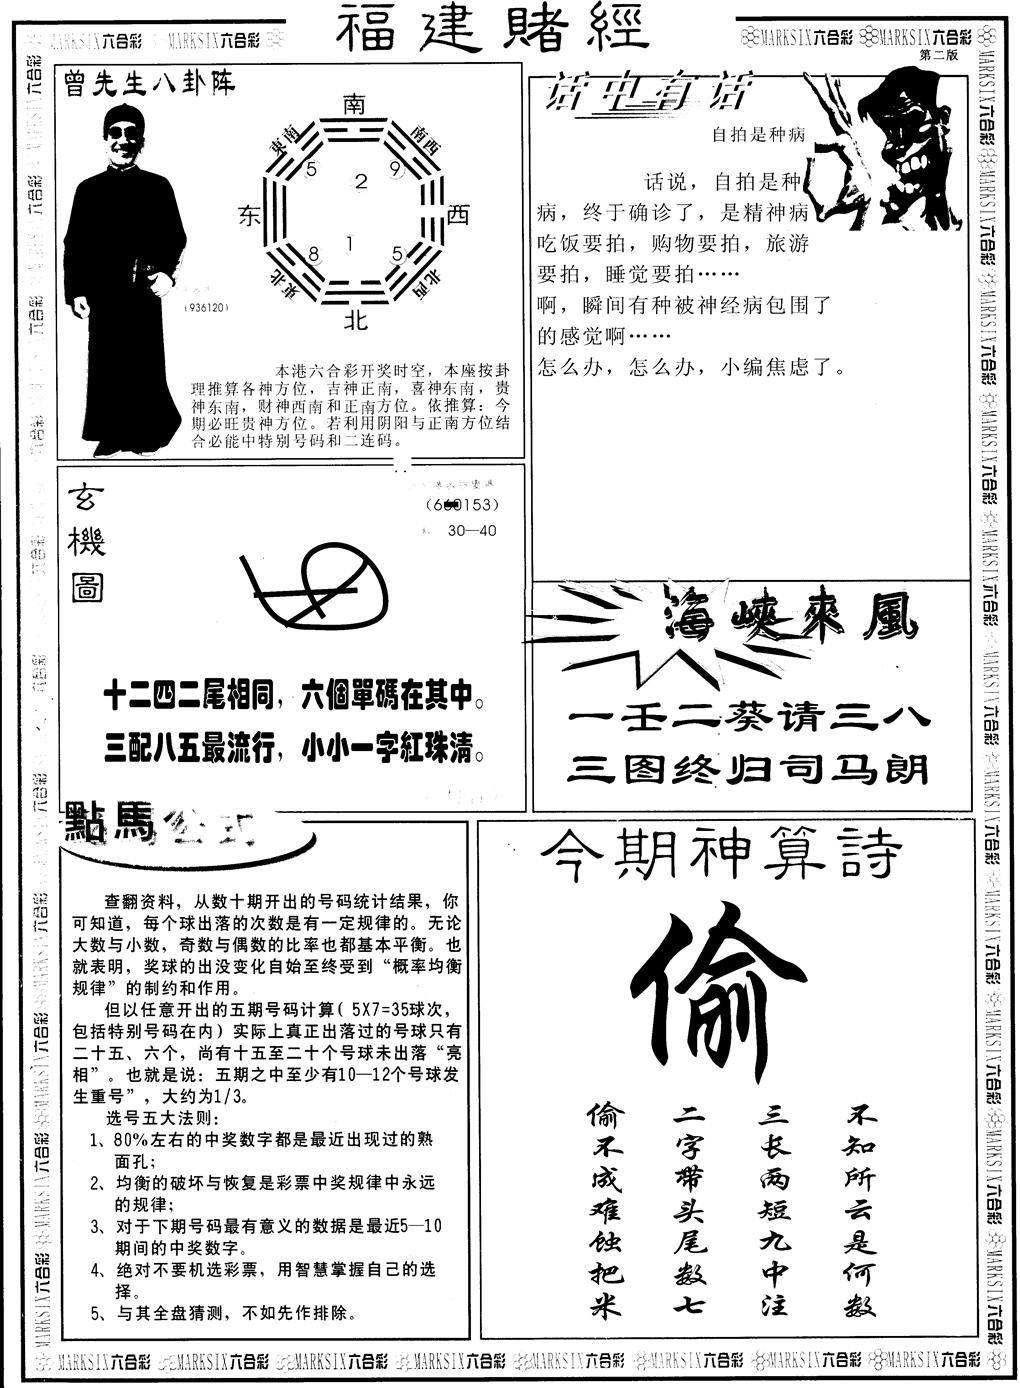 福建賭經
MARKSIX六合彩 MARKSIX六合彩
MARKSIX六合彩 MARKSIX六合彩
第二版
曾先生八卦阵
南
東南
南西
5
2
9
东
西
8
1
5
東北
北西
北
(936120)
本港六合彩开奖时空，本座按卦
理推算各神方位，吉神正南，喜神东南，贵
神东南，财神西南和正南方位。依推算：今
期必旺贵神方位。若利用阴阳与正南方位结
合必能中特别号码和二连码。
话中有话
自拍是种病
话说，自拍是种
病，终于确诊了，是精神病
吃饭要拍，购物要拍，旅游
要拍，睡觉要拍……
啊，瞬间有种被神经病包围了
的感觉啊……
怎么办，怎么办，小编焦虑了。
玄機圖
30—40
十二四二尾相同，六個單碼在其中。
三配八五最流行，小小一字紅珠清。
海峽來風
一壬二葵请三八
三图终归司马朗
點馬公式
查翻资料，从数十期开出的号码统计结果，你
可知道，每个球出落的次数是有一定规律的。无论
大数与小数，奇数与偶数的比率也都基本平衡。也
就表明，奖球的出没变化自始至终受到“概率均衡
规律”的制约和作用。
但以任意开出的五期号码计算(5X7=35球次，
包括特别号码在内)实际上真正出落过的号球只有
二十五、六个，尚有十五至二十个号球未出落“亮
相”。也就是说：五期之中至少有10—12个号球发
生重号”，大约为1/3。
选号五大法则：
1、80%左右的中奖数字都是最近出现过的熟
面孔；
2、均衡的破坏与恢复是彩票中奖规律中永远
的规律；
3、对于下期号码最有意义的数据是最近5—10
期间的中奖数字。
4、绝对不要机选彩票，用智慧掌握自己的选
择。
5、与其全盘猜测，不如先作排除。
今期神算詩
偷
不知所云是何数
三长两短九中注
二字带头尾数七
偷不成难蚀把米
MARKSIX六合彩 MARKSIX六合彩 MARKSIX六合彩 MARKSIX六合彩 MARKSIX六合彩 MARKSIX六合彩 MARKSIX六合彩 MARKSIX六合彩